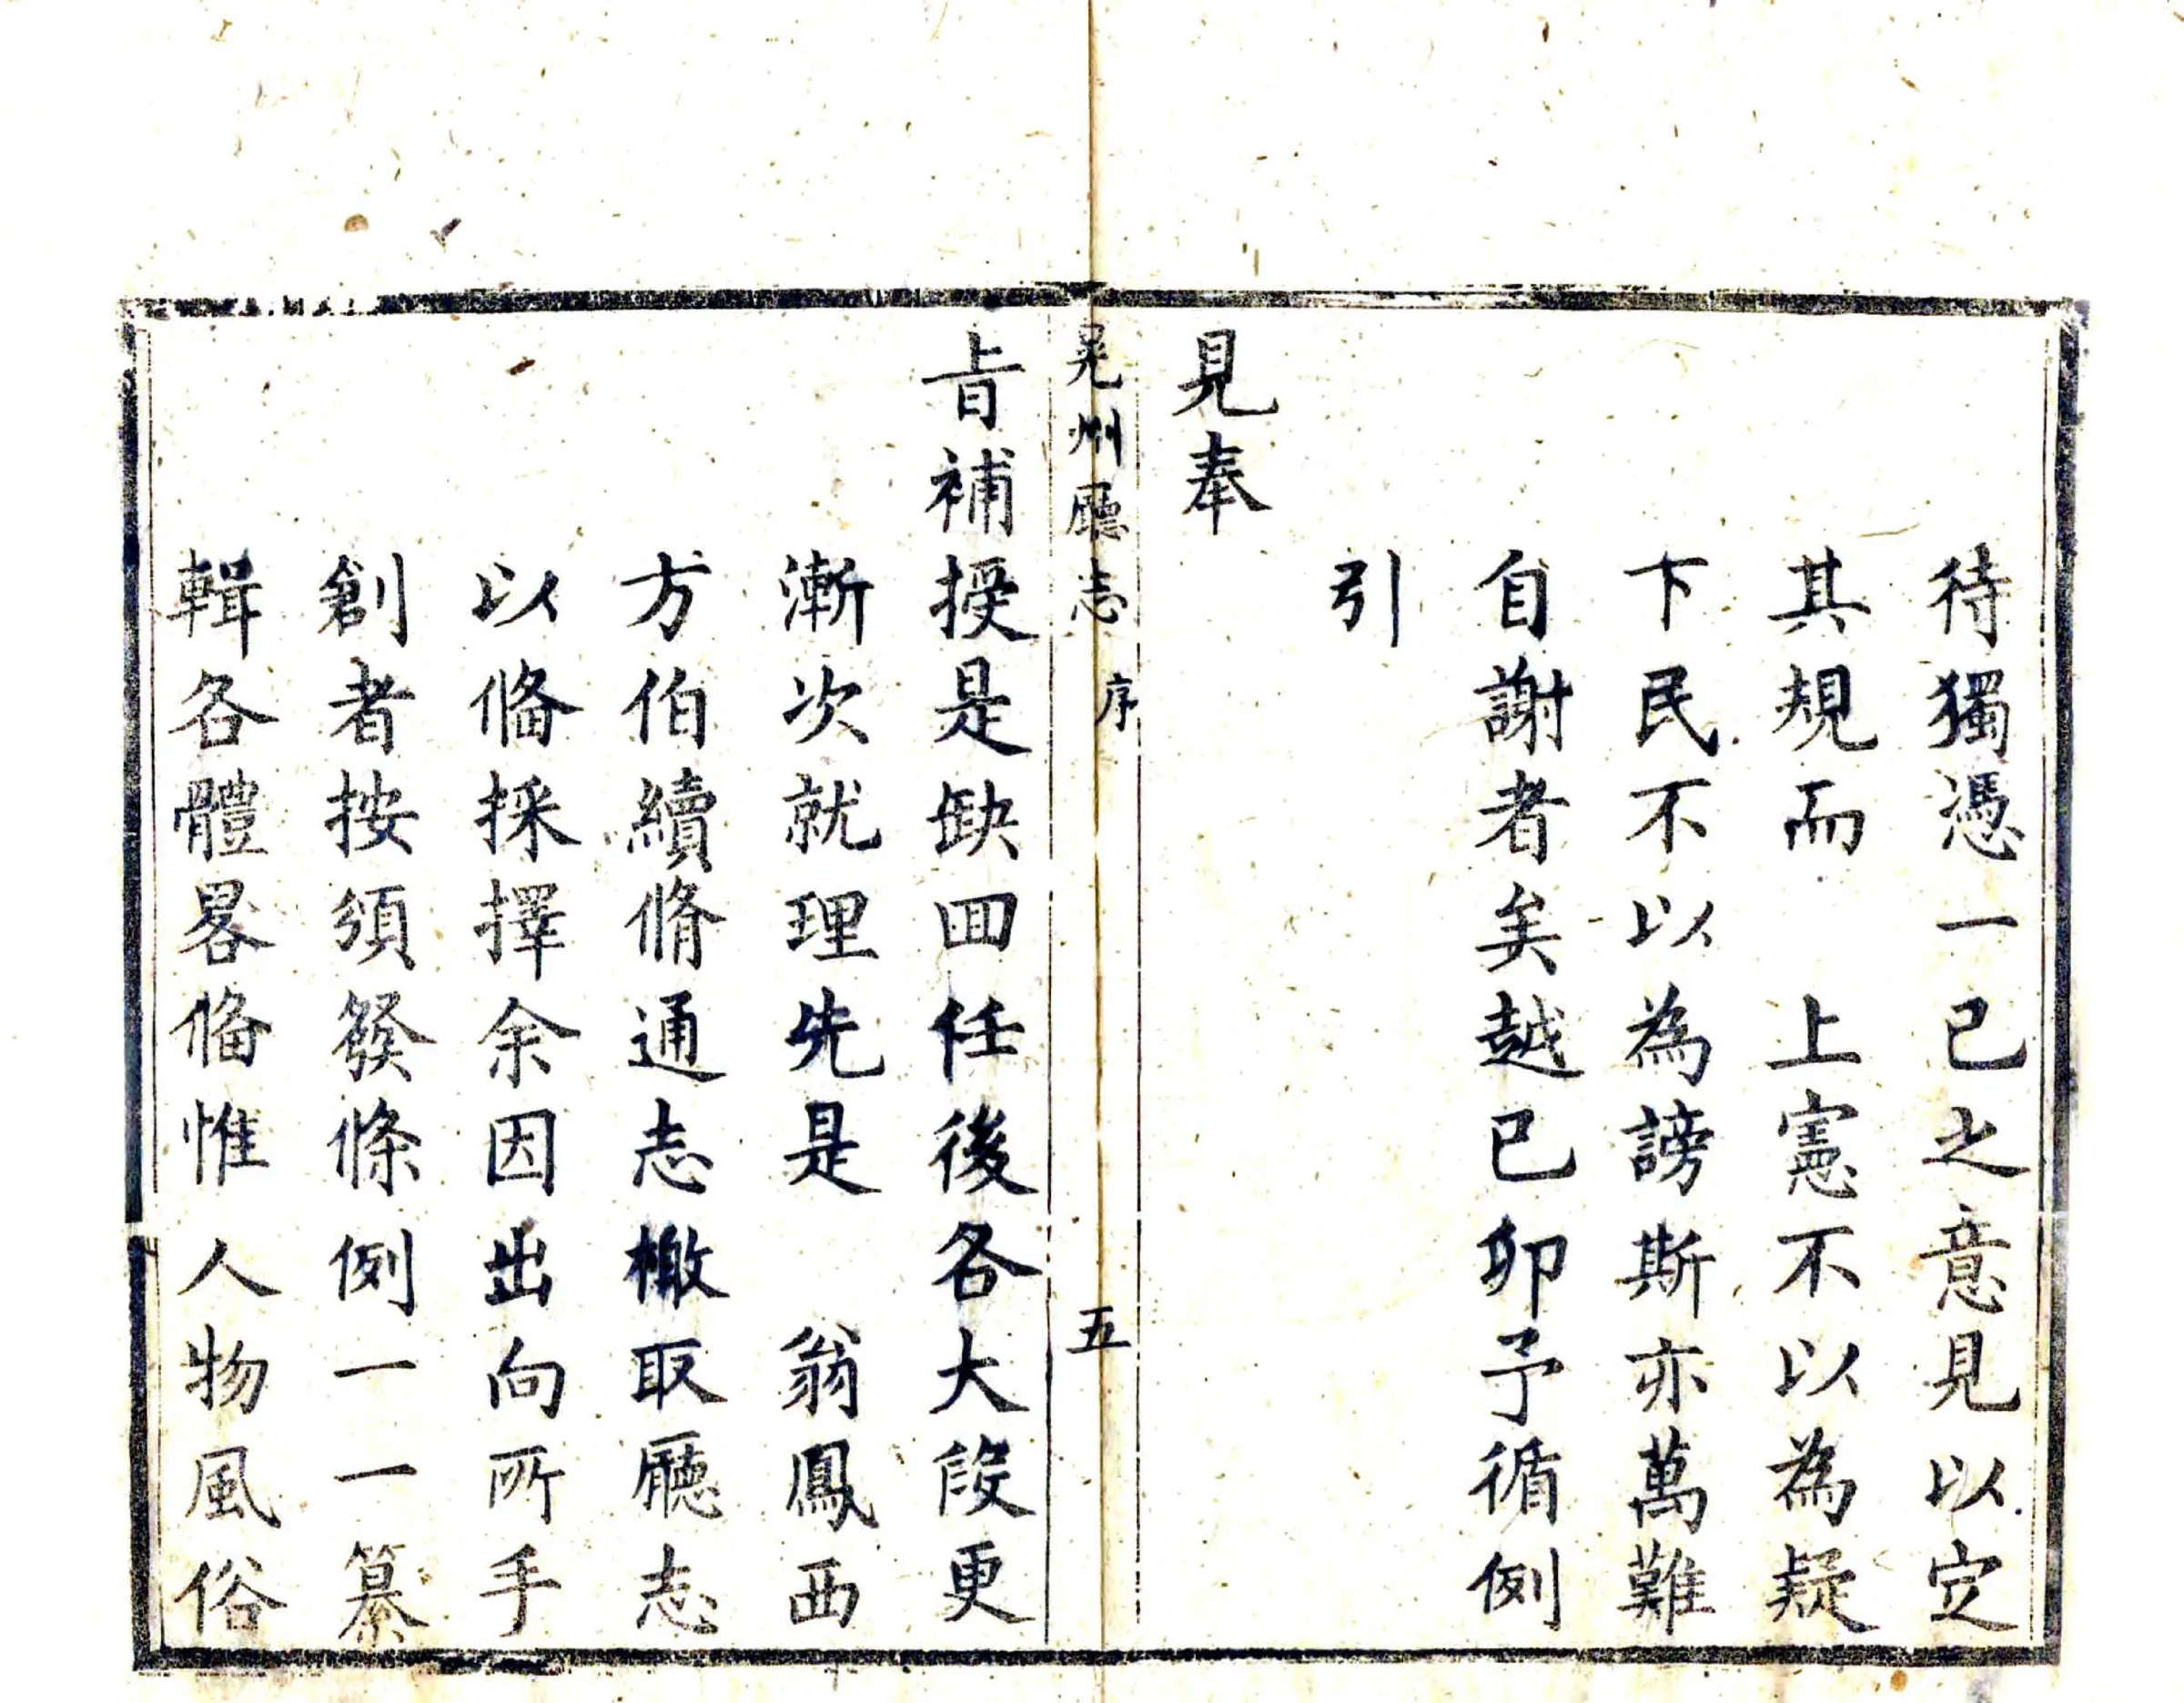 待獨憑一已之意見以定
其規而　上憲不以為疑
下民不以為謗斯亦萬難
自謝者矣越已卯予循例
引
見奉
晃州廳志　序　五
旨補授是缺回任後各大段更
漸次就理先是　翁鳳西
方伯續脩通志檄取廳志
以俻採擇余因出向所手
創者按須發條例一一纂
輯各體畧俻惟人物風俗